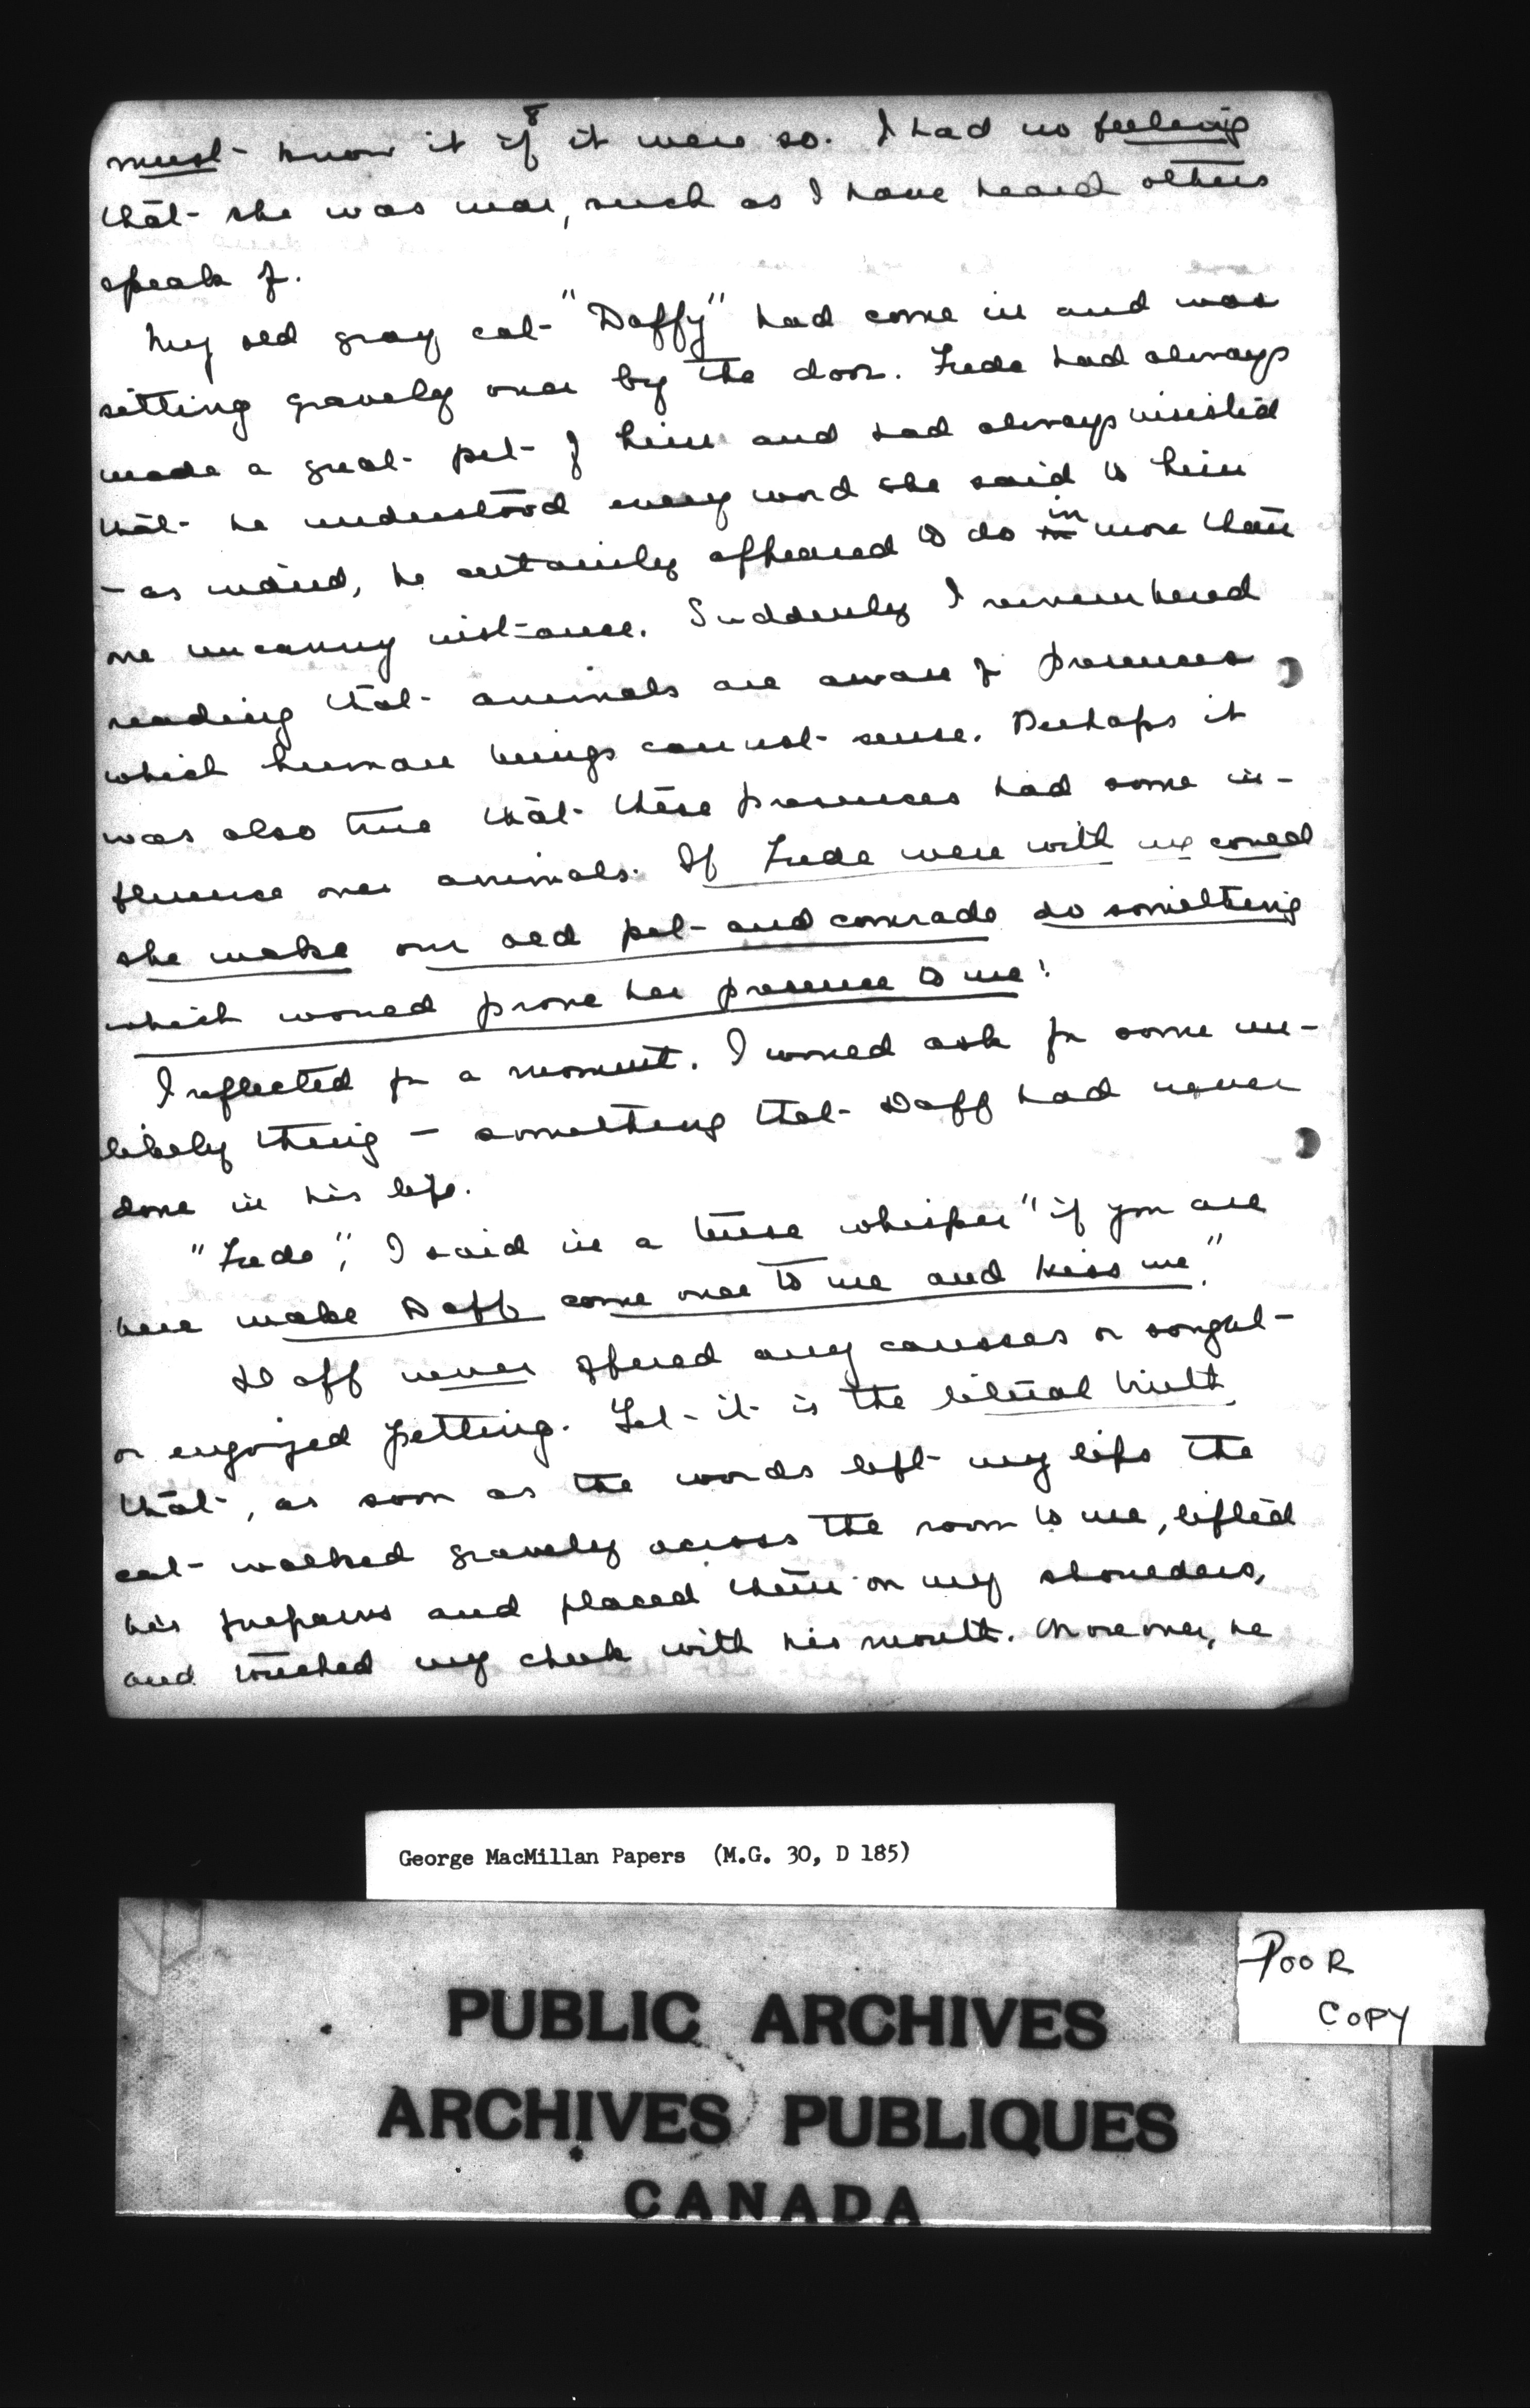 8
must know it if it were so. I had no feeling
that she was near, such as I have heard others
speak of.
My old gray cat "Daffy" had come in and was
sitting gravely over by the door. Frede had always
made a great pet of him and had always insisted
that he understood every word she said to him
- as indeed, he certainly appeared to do in more than
one uncanny instance. Suddenly I remembered
reading that animals are aware of presences
which human beings cannot sense. Perhaps it
was also true that these presences had some in-
fluence over animals. If Frede were with me could
she make our old pet and comrade do something
which would prove her presence to me!
I reflected for a moment. I would ask for some un-
likely thing — something that Daff had never
done in his life.
"Frede", I said in a tense whisper "if you are
here make Daff come over to me and kiss me."
Daff never offered any caresses or sought
or enjoyed petting. Yet it is the literal truth
that, as soon as the words left my lips the
cat walked gravely across the room to me, lifted
his forepaws and placed them on my shoulders,
and touched my cheek with his mouth. Moreover, he
George MacMillan Papers (M.G. 30, D 185)
POOR
COPY
PUBLIC ARCHIVES
ARCHIVES PUBLIQUES
CANADA